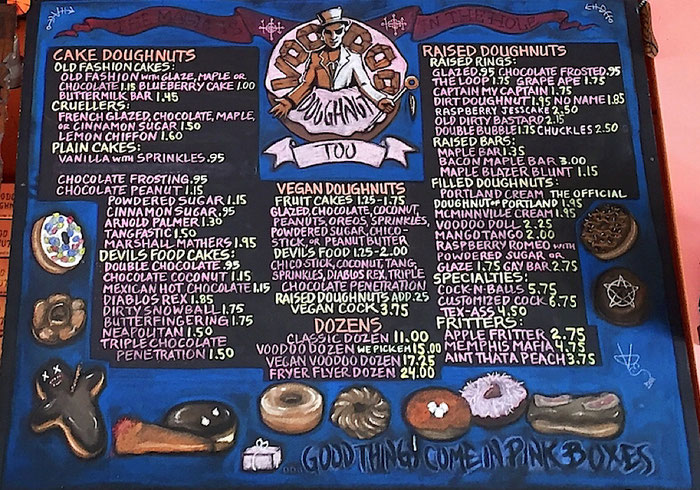 THE MAGIC IS IN THE HOLE
CAKE DOUGHNUTS
OLD FASHION CAKES:
OLD FASHION WITH GLAZE, MAPLE OR
CHOCOLATE 1.15 BLUEBERRY CAKE 1.00
BUTTERMILK BAR 1.45
CRUELLERS:
FRENCH GLAZED, CHOCOLATE, MAPLE,
OR CINNAMON SUGAR 1.50
LEMON CHIFFON 1.60
PLAIN CAKES:
VANILLA WITH SPRINKLES .95
CHOCOLATE FROSTING .95
CHOCOLATE PEANUT 1.15
POWDERED SUGAR 1.15
CINNAMON SUGAR .95
ARNOLD PALMER 1.30
TANGFASTIC 1.50
MARSHALL MATHERS 1.95
DEVILS FOOD CAKES:
DOUBLE CHOCOLATE .95
CHOCOLATE COCONUT 1.15
MEXICAN HOT CHOCOLATE 1.15
DIABLOS REX 1.85
DIRTY SNOWBALL 1.75
BUTTERFINGERING 1.75
NEAPOLITAN 1.50
TRIPLE CHOCOLATE
PENETRATION 1.50
VOODOO
DOUGHNUT
TOO
VEGAN DOUGHNUTS
FRUIT CAKES 1.25-1.75
GLAZED, CHOCOLATE, COCONUT,
PEANUTS, OREOS, SPRINKLES,
POWDERED SUGAR, CHICO-
STICK, OR PEANUT BUTTER
DEVILS FOOD 1.25-2.00
CHICO STICK, COCONUT, TANG,
SPRINKLES, DIABLOS REX, TRIPLE
CHOCOLATE PENETRATION
RAISED DOUGHNUTS ADD .25
VEGAN COCK 3.75
DOZENS
CLASSIC DOZEN 11.00
VOODOO DOZEN WE PICK EM 15.00
VEGAN VOODOO DOZEN 17.25
FRYER FLYER DOZEN 24.00
RAISED DOUGHNUTS
RAISED RINGS:
GLAZED .95 CHOCOLATE FROSTED .95
THE LOOP 1.75 GRAPE APE 1.75
CAPTAIN MY CAPTAIN 1.75
DIRT DOUGHNUT 1.95 NO NAME 1.85
RASPBERRY JESSCAKE 2.50
OLD DIRTY BASTARD 2.15
DOUBLE BUBBLE 1.75 CHUCKLES 2.50
RAISED BARS:
MAPLE BAR 1.35
BACON MAPLE BAR 3.00
MAPLE BLAZER BLUNT 1.15
FILLED DOUGHNUTS:
PORTLAND CREAM THE OFFICIAL
DOUGHNUT OF PORTLAND 1.95
MCMINNVILLE CREAM 1.95
VOODOO DOLL 2.25
MANGO TANGO 2.00
RASPBERRY ROMEO WITH
POWDERED SUGAR OR
GLAZE 1.75 GAY BAR 2.75
SPECIALTIES:
COCK-N-BALLS 5.75
CUSTOMIZED COCK 6.75
TEX-ASS 4.50
FRITTERS:
APPLE FRITTER 2.75
MEMPHIS MAFIA 4.75
AINT THAT A PEACH 3.75
...GOOD THINGS COME IN PINK BOXES